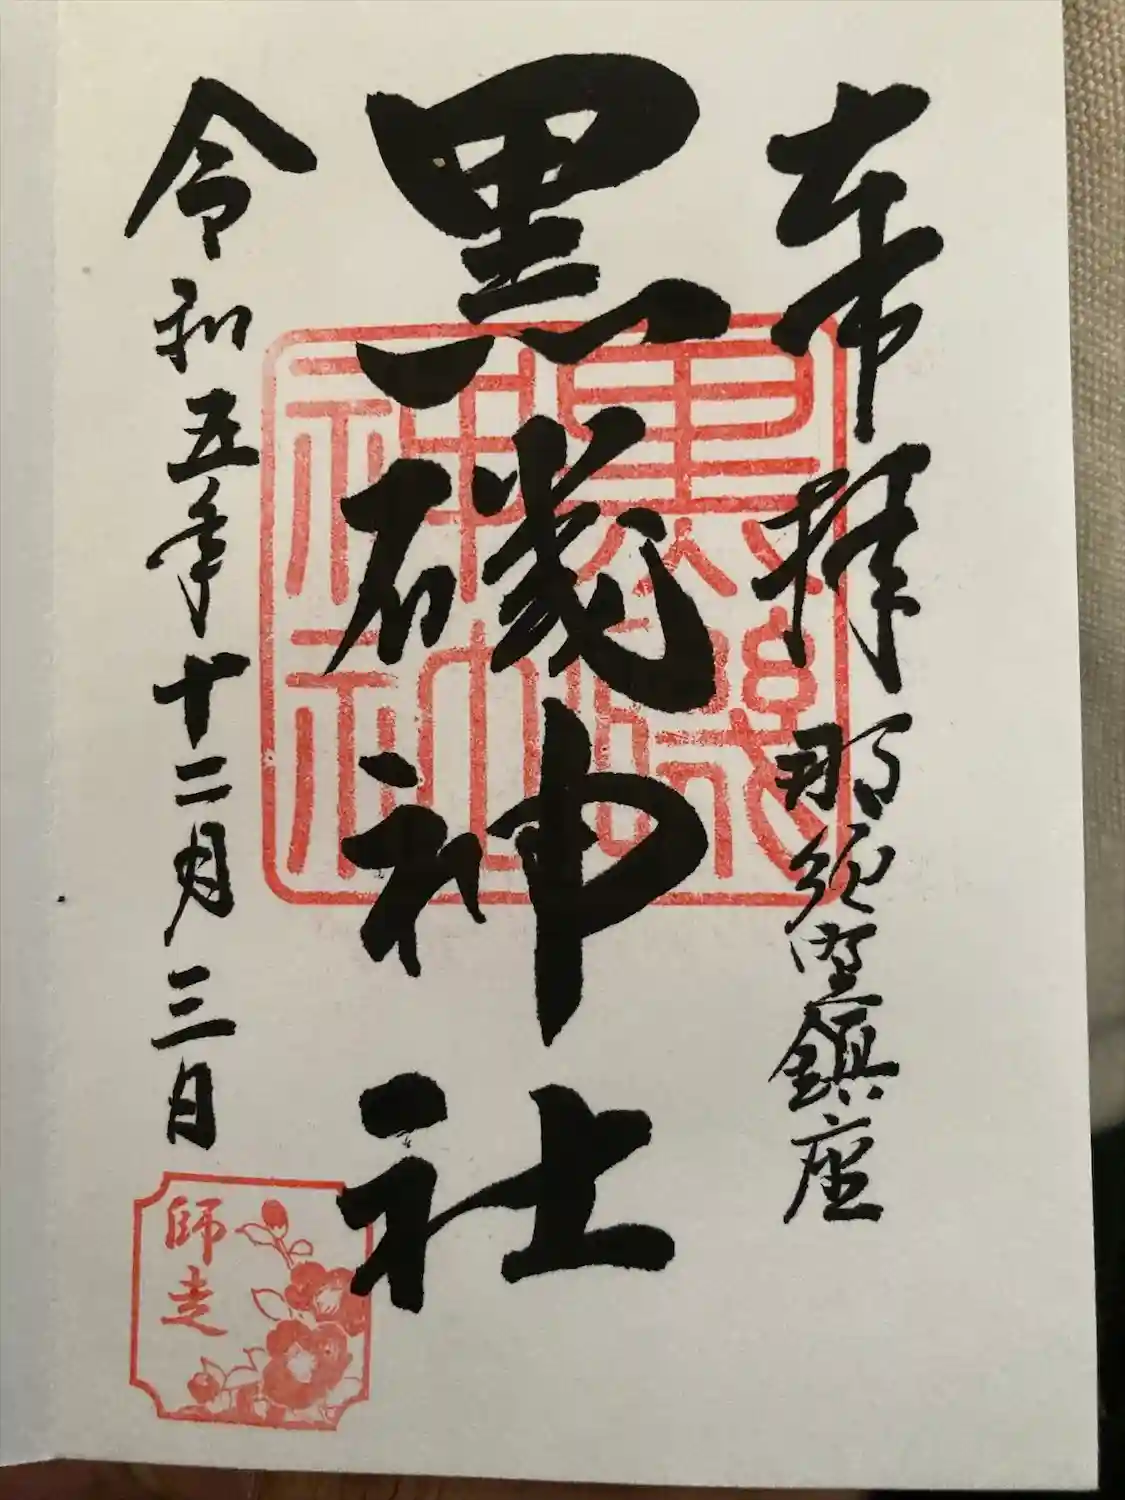 奉拝 那須野鎮座
黒磯神社
令和五年十二月三日
黒磯
神社
師走